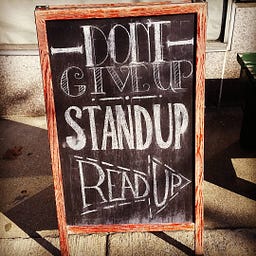 DONT
GIVE UP
STAND UP
READ UP